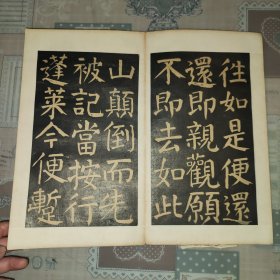 往如是便還
還即親觀願
不即去如此
山顛倒而先
被記當按行
蓬萊今便蹔